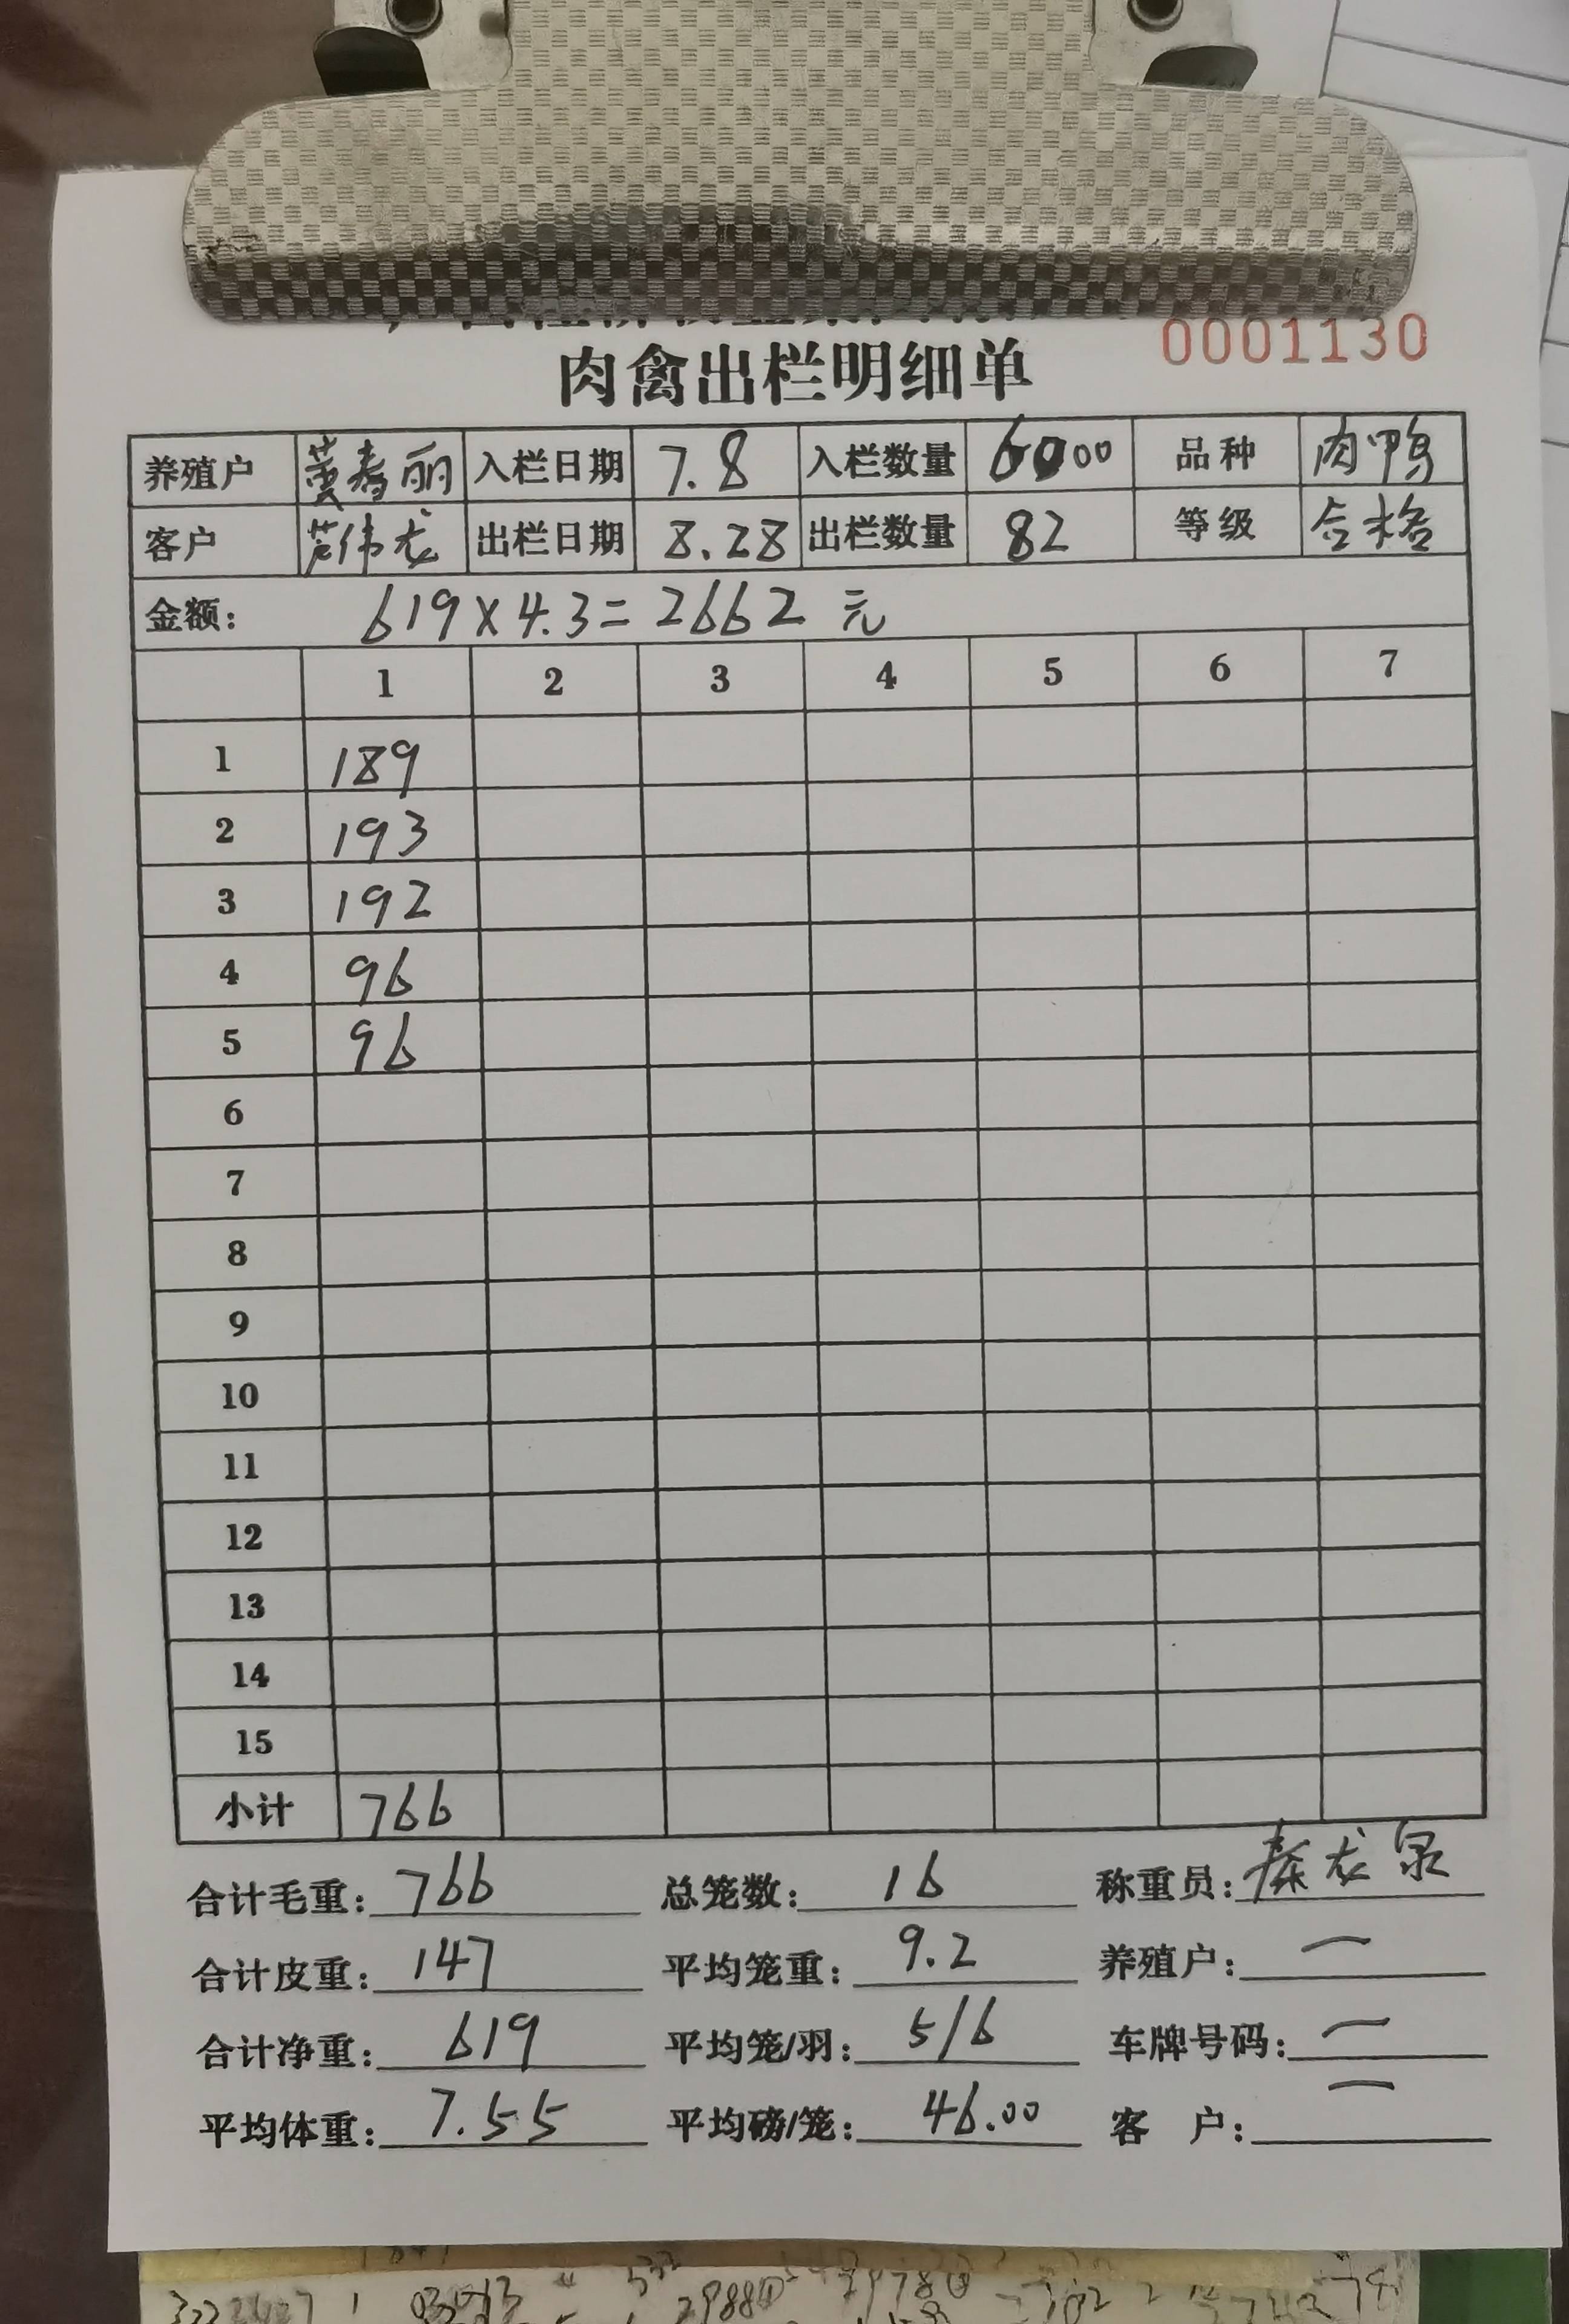 0001130
肉禽出栏明细单
养殖户 黄春丽 入栏日期 7.8 入栏数量 6000 品种 肉鸭
客户 伟龙 出栏日期 8.28 出栏数量 82 等级 合格
金额: 619×4.3=2662 元
1 2 3 4 5 6 7
1 189
2 193
3 192
4 96
5 96
6
7
8
9
10
11
12
13
14
15
小计 766
合计毛重: 766 总笼数: 16 称重员: 秦龙泉
合计皮重: 147 平均笼重: 9.2 养殖户: 一
合计净重: 619 平均笼/羽: 5/6 车牌号码: 一
平均体重: 7.55 平均磅/笼: 46.00 客 户: 一